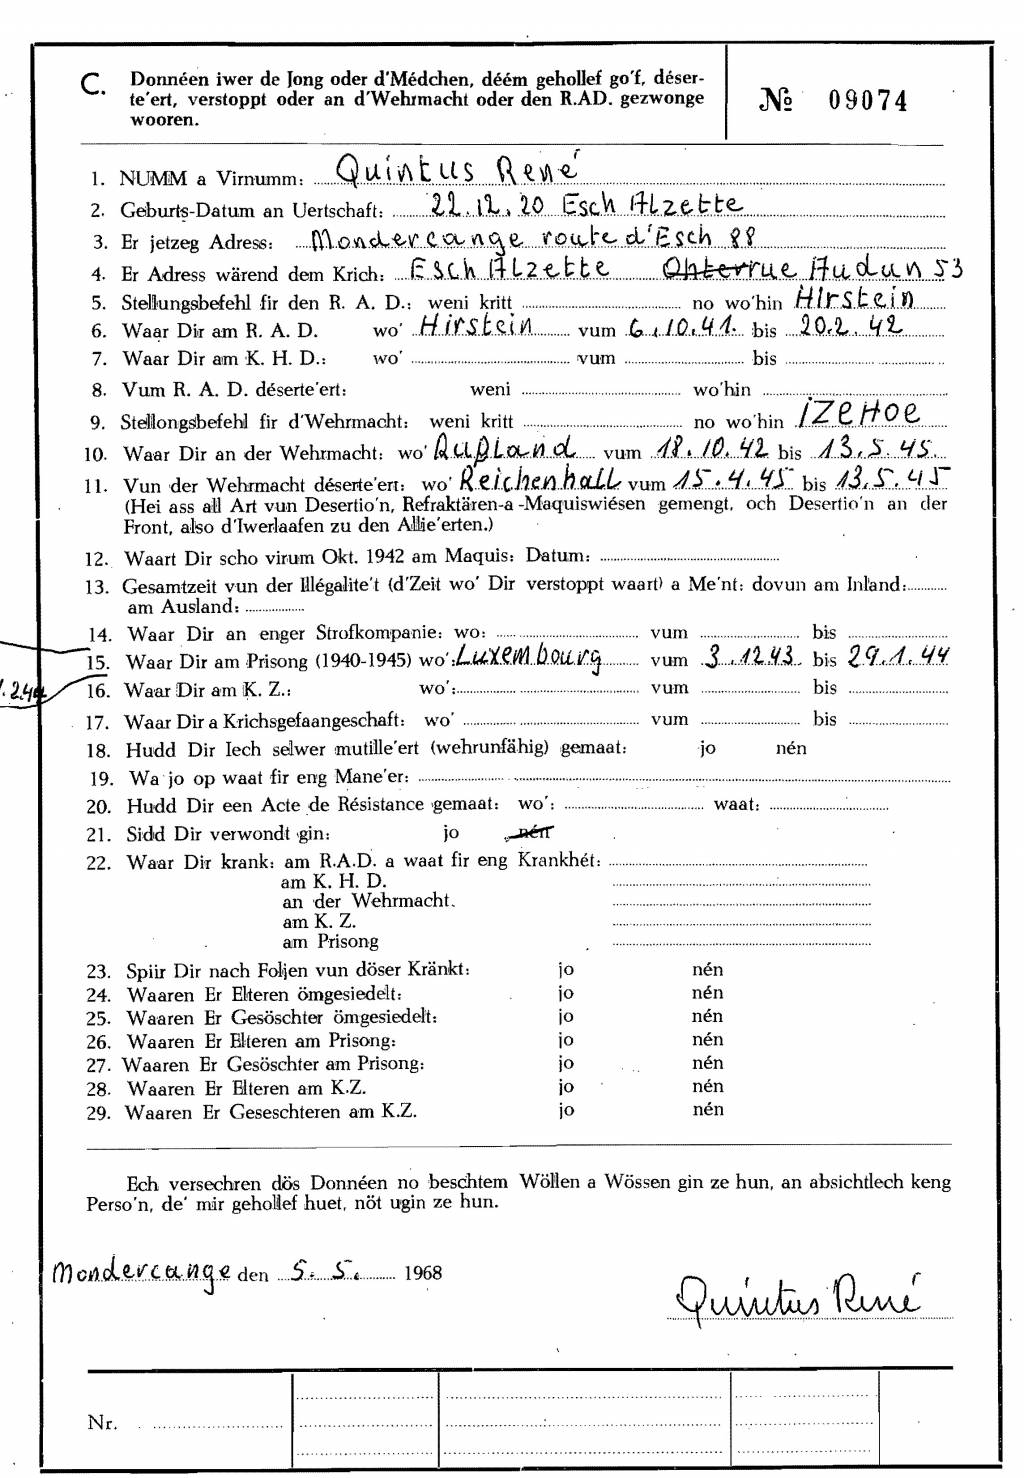 C. Donnéen iwer de Jong oder d'Médchen, déém gehollef go'f, déser-
te'ert, verstoppt oder an d'Wehrmacht oder den R.AD. gezwonge
wooren.
№ 09074
1. NUMM a Virnumm: Quintus René
2. Geburts-Datum an Uertschaft: 22.12.20 Esch Alzette
3. Er jetzeg Adress: Mondercange route d'Esch 88
4. Er Adress wärend dem Krich: Esch Alzette rue Audun 53
5. Stellungsbefehl fir den R. A. D.: weni kritt no wo'hin Hirstein
6. Waar Dir am R. A. D. wo' Hirstein vum 6.10.41. bis 20.2.42
7. Waar Dir am K. H. D.: wo' vum bis
8. Vum R. A. D. déserte'ert: weni wo'hin
9. Stellongsbefehl fir d'Wehrmacht: weni kritt no wo'hin IZEHOE
10. Waar Dir an der Wehrmacht: wo' Rußland vum 18.10.42 bis 13.5.45.
11. Vun der Wehrmacht déserte'ert: wo' Reichenhall vum 15.4.45 bis 13.5.45
(Hei ass all Art vun Desertio'n, Refraktären-a-Maquiswiésen gemengt, och Desertio'n an der
Front, also d'Iwerlaafen zu den Allie'erten.)
12. Waart Dir scho virum Okt. 1942 am Maquis: Datum:
13. Gesamtzeit vun der Illégalite't (d'Zeit wo' Dir verstoppt waart) a Me'nt: dovun am Inland:
am Ausland:
14. Waar Dir an enger Strofkompanie: wo: vum bis
15. Waar Dir am Prisong (1940-1945) wo': Luxembourg vum 3.12.43. bis 29.1.44
16. Waar Dir am K. Z.: wo': vum bis
17. Waar Dir a Krichsgefaangeschaft: wo' vum bis
18. Hudd Dir Iech selwer mutille'ert (wehrunfähig) gemaat: jo nén
19. Wa jo op waat fir eng Mane'er:
20. Hudd Dir een Acte de Résistance gemaat: wo': waat:
21. Sidd Dir verwondt gin: jo nén
22. Waar Dir krank: am R.A.D. a waat fir eng Krankhét:
am K. H. D.
an der Wehrmacht.
am K. Z.
am Prisong
23. Spiir Dir nach Foljen vun döser Kränkt: jo nén
24. Waaren Er Elteren ömgesiedelt: jo nén
25. Waaren Er Gesöschter ömgesiedelt: jo nén
26. Waaren Er Elteren am Prisong: jo nén
27. Waaren Er Gesöschter am Prisong: jo nén
28. Waaren Er Elteren am K.Z. jo nén
29. Waaren Er Geseschteren am K.Z. jo nén
Ech versechren dös Donnéen no beschtem Wöllen a Wössen gin ze hun, an absichtlech keng
Perso'n, de' mir gehollef huet, nöt ugin ze hun.
Mondercange den 5. 5. 1968
Quintus René
Nr.